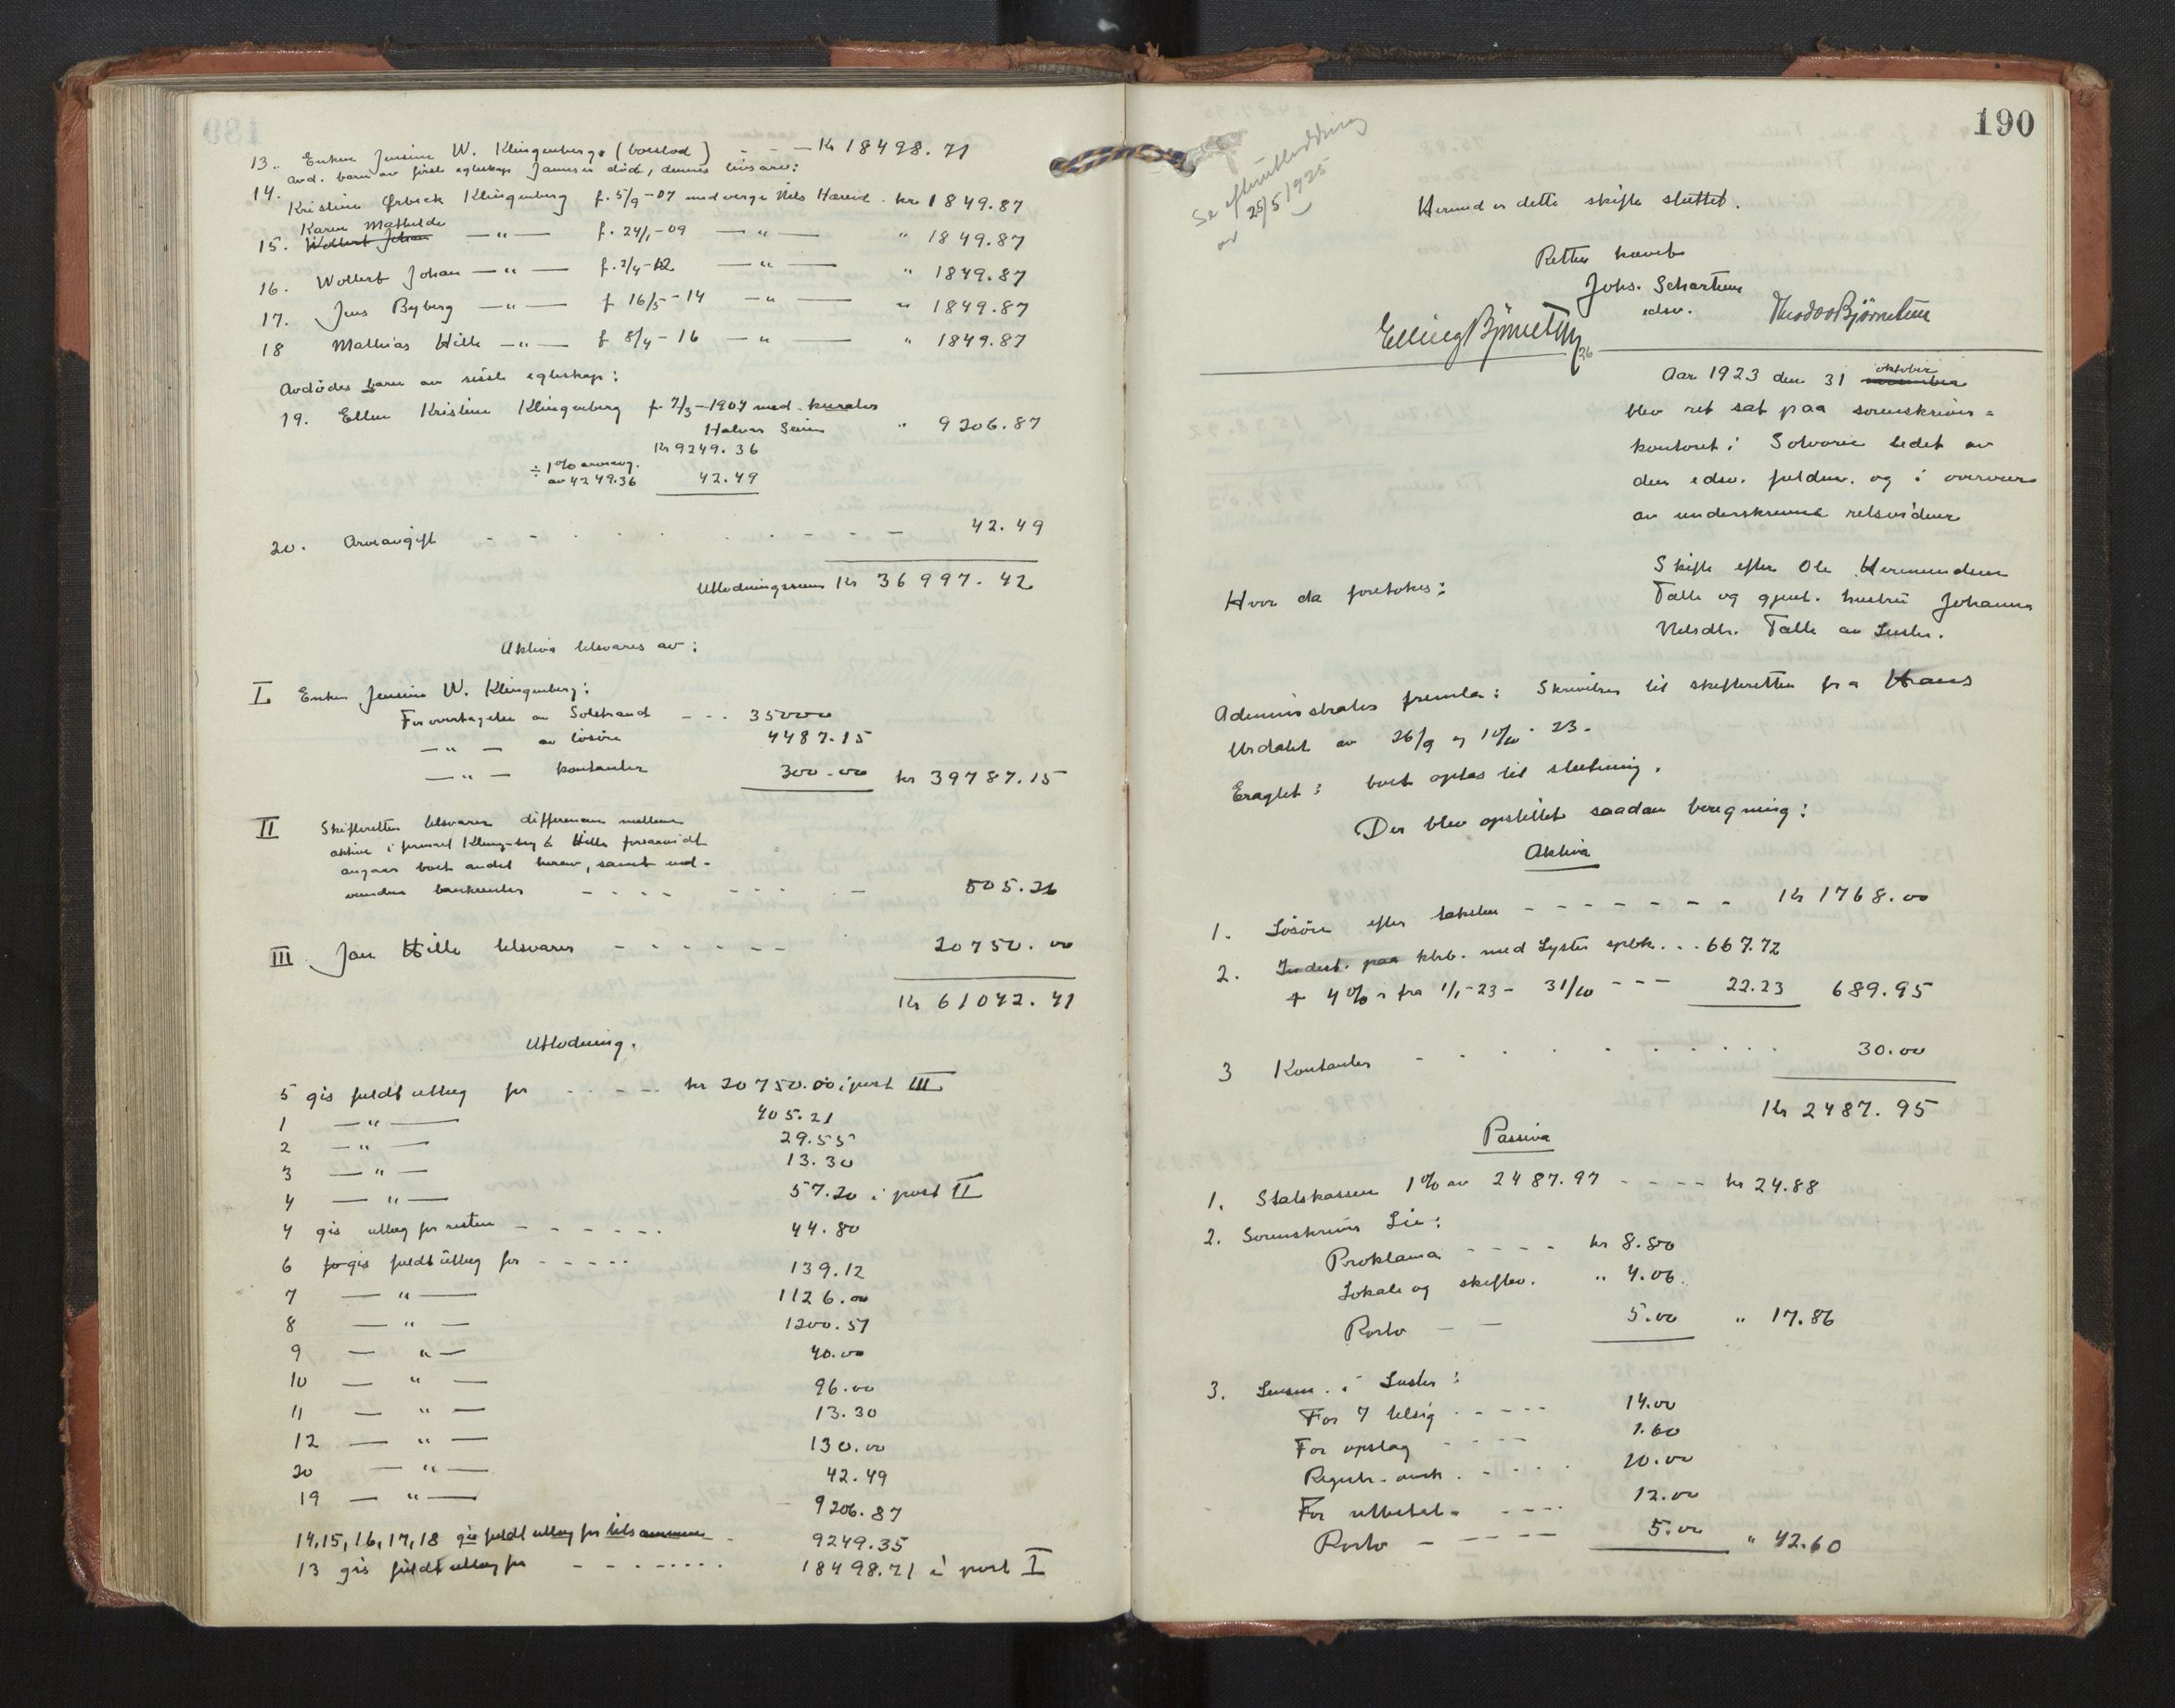 13. Enken Jensine W. Klingenberg (boeslod) - - - Kr 18498.71
Avd. barn av første egteskap Jannes er død, dennes livsarv:
14. Kristine Ørbeck Klingenberg f. 5/9-07 med verge Nils Hæreid - kr 1849.87
Karen Mathilde
15. Wollert Johan —"— f. 24/1-09 —"— " 1849.87
16. Wollert Johan —"— f. 2/4-12 —"— " 1849.87
17. Jens Byberg —"— f 16/5-14 —"— " 1849.87
18 Mathias Hille —"— f 8/4-16 —"— " 1849.87
Avdødes barn av siste egteskap:
19. Ellen Kristine Klingenberg f. 7/3-1904 med kurator
Halvor Seim " 9206.87
Kr 9249.36
÷ 1% arveavg.
av 4249.36 42.49
20. Arveavgift - - - - - - - - - 42.49
Utlodningssum Kr 36997.42
Aktiva tilsvares av:
I Enken Jensine W. Klingenberg:
For overtagelse av Solstrand - - - 35000
—"— av løsøre 4487.15
—"— kontanter 300.00 kr 39787.15
II Skifteretten tilsvarer differensen mellem
aktive i firmaet Klingenberg & Hille forsaavidt
angaar boets andel herav, samt ind-
vundne bankrenter - - - - - - - - 505.26
III Jan Hille tilsvarer - - - - - - 20750.00
Kr 61042.41
Utlodning.
5 gis fuldt utlæg for - - - - - kr 20750.00 i post III
1 —"— 405.21
2 —"— 29.55
3 —"— 13.30
4 —"— 57.20 i post II
4 gis utlæg for resten - - - - - - 44.80
6 gis fuldt utlæg for - - - - - 139.12
7 —"— 1126.00
8 —"— 1200.51
9 —"— 40.00
10 —"— 96.00
11 —"— 13.30
12 —"— 130.00
20 —"— 42.49
19 —"— 9206.87
14, 15, 16, 17, 18 gis fuldt utlæg for tilsammen - 9249.35
13 gis fuldt utlæg for - - - - - - - 18498.71 i post I
190
Se efterutlodning
av 25/5 1925
Hermed er dette skifte sluttet.
Retten hævet
Johs. Schartum
edsv.
Elling Bjørnetun Theodor Bjørnetun
26
oktober
Aar 1923 den 31 november
blev ret sat paa sorenskriver-
kontoret i Solvorn ledet av
den edsv. fuldm. og i overvær
av underskrevne retsvidner
Hvor da foretokes:
Skifte efter Ole Hermundsen
Talle og gjenl. hustru Johanne
Nilsdtr. Talle av Luster.
Administrator fremla: Skrivelser til skifteretten fra Hans
Urdahl av 26/9 og 10/10 - 23.
Eragtet: boet optas til slutning.
Der blev opstillet saadan beregning:
Aktiva
1. Løsøre efter taksten - - - - - - - - Kr 1768.00
2. Indest. paa kbb. med Lyster spbk. . . 667.72
+ 4% r fra 1/1-23 - 31/10 - - - 22.23 689.95
3 Kontanter - - - - - - - - 30.00
Kr 2487.95
Passiva
1. Statskassen 1% av 2487.97 - - - - kr 24.88
2. Sorenskriver Lie:
Proklama - - - - kr 8.80
Lokale og skiftev. " 4.06
Porto - - 5.00 " 17.86
3. Lensm. i Luster:
For 7 tilsig - - - - - 14.00
For opslag - - - - 1.60
Registr. avh. - - - - 10.00
For utbetal. - - - - 12.00
Porto - - - - 5.00 " 42.60